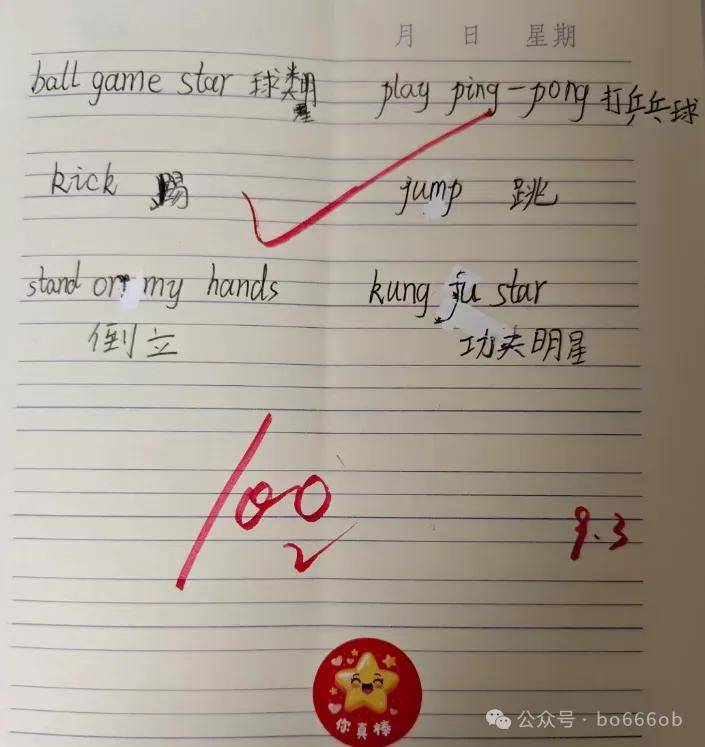 月 日 星期
ball game star 球类明星 play ping-pong 打乒乓球
kick 踢 jump 跳
stand on my hands kung fu star
倒立 功夫明星
100
9.3
你真棒
公众号·bo666ob